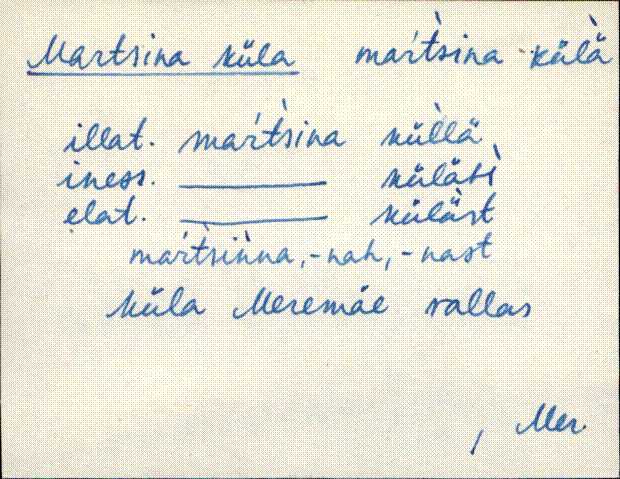 Martsina küla mar´tsina külä
illat. mar´tsina küllä
iness. ______ külähi
elat. ______ küläst
mar´tsinna, -nah, -nast
küla Meremäe vallas
, Mer.